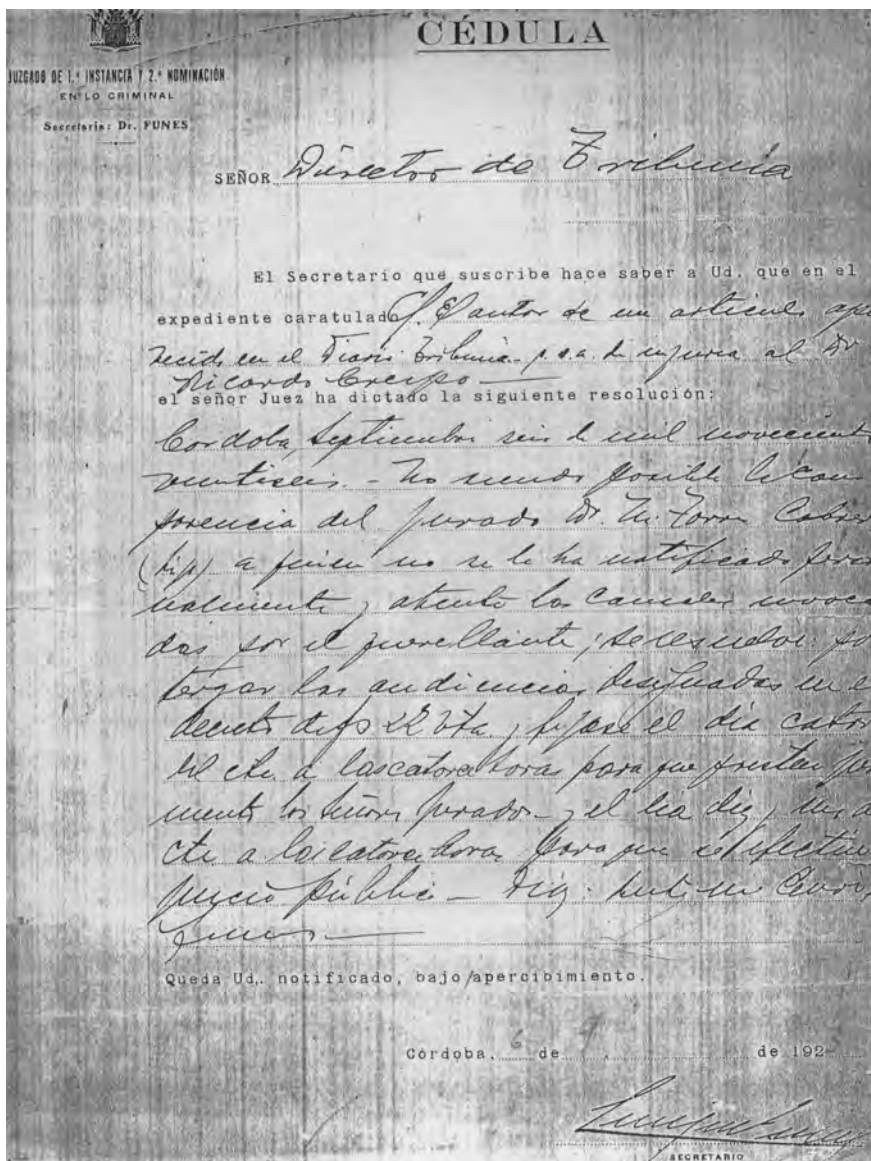 CÉDULA
JUZGADO DE 1.ª INSTANCIA Y 2.ª NOMINACIÓN
EN LO CRIMINAL
Secretaria: Dr. FUNES
SEÑOR Director de Tribuna
El Secretario que suscribe hace saber a Ud. que en el
expediente caratulado C/. El autor de un articulo apa
recido en el Diario Tribuna p.s.a. de injuria al Dr
Ricardo Crespo
el señor Juez ha dictado la siguiente resolución:
Cordoba, Septiembre seis de mil novecientos
veintiseis. - No siendo posible la com
parencia del jurado Dr. M. Torres Cabrer
(hijo) a quien no se le ha notificado perso
nalmente, y atento las causales invoca
das por el querellante; se resuelve: pos
tergar las audiencias designadas en el
decreto de fs 22 vta, fijase el dia cator
del cte. a las catorce horas para que presten jura
mento los señores jurados y el dia
cte a las catorce horas para que se efectúe
juicio público -
Funes
Queda Ud. notificado, bajo apercibimiento.
Córdoba, 6 de 9 de 192
SECRETARIO